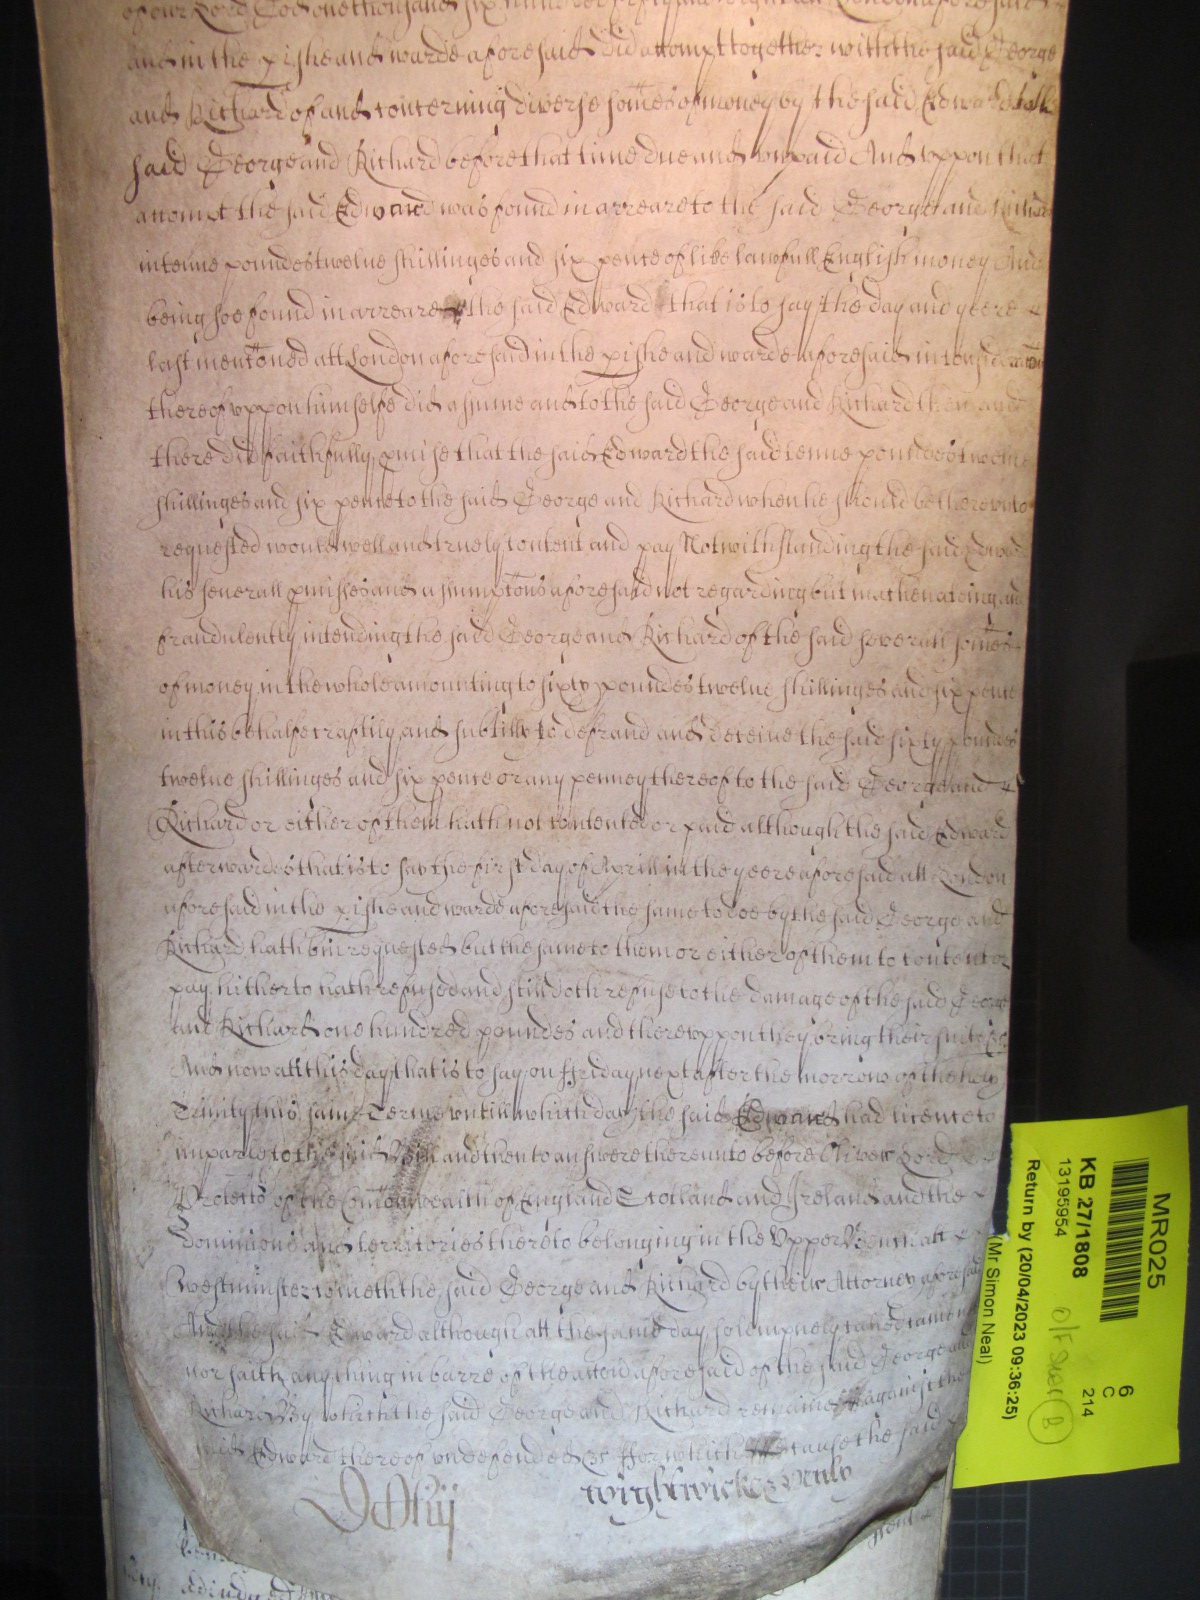 of our Lord God one thousand six hundred fifty and eight att London aforesaid
and in the pishe and warde aforesaid did accompt together with the said George
and Richard of and concerning diverse somes of money by the said Edward to the
said George and Richard before that time due and vnpaid And vppon that
accompt the said Edward was found in arreare to the said George and Richard
in tenne poundes twelue shillinges and six pence of like lawfull English money And
being soe found in arreare the said Edward that is to say the day and yeere
last menconed att London aforesaid in the pishe and warde aforesaid in consideracon
thereof vppon himselfe did assume and to the said George and Richard then and
there did faithfully pmise that the said Edward the said tenne poundes twelue
shillinges and six pence to the said George and Richard when he should be therevnto
requested would well and truely content and pay Notwithstanding the said Edward
his severall pmisses and assumptons aforesaid not regarding but machinateing and
fraudulently intending the said George and Richard of the said severall somes
of money in the whole amounting to sixty poundes twelue shillinges and six pence
in this behalfe craftily and subtilly to defraud and deceive the said sixty poundes
twelue shillinges and six pence or any penney thereof to the said George and
Richard or either of them hath not contented or paid although the said Edward
afterwardes that is to say the first day of Aprill in the yeere aforesaid att London
aforesaid in the pishe and warde aforesaid the same to doe by the said George and
Richard hath bin requested but the same to them or either of them to content or
pay hitherto hath refused and still doth refuse to the damage of the said George
and Richard one hundred poundes and therevppon they bring their suite &c
And now att this day that is to say on ffriday next after the morrow of the holy
Trinity this same Terme vntill which day the said Edward had licence to
imparle to the said Bill and then to answere therevnto before Oliver Lord
Protector of the Comonwealth of England Scotland and Ireland and the
dominions and territories thereto belonging in the Vpper Bench att
Westminster cometh the said George and Richard by their Attorney aforesaid
And the said Edward although att the same day solempnely called came not
nor saith anything in barre of the accon aforesaid of the said George and
Richard By which the said George and Richard remaines against the
said Edward thereof vndefended &c ffor which cause the said
wightwicke
MR025
6
C
214
KB 27/1808
13195954
Return by (20/04/2023 09:36:25)
(Mr Simon Neal)